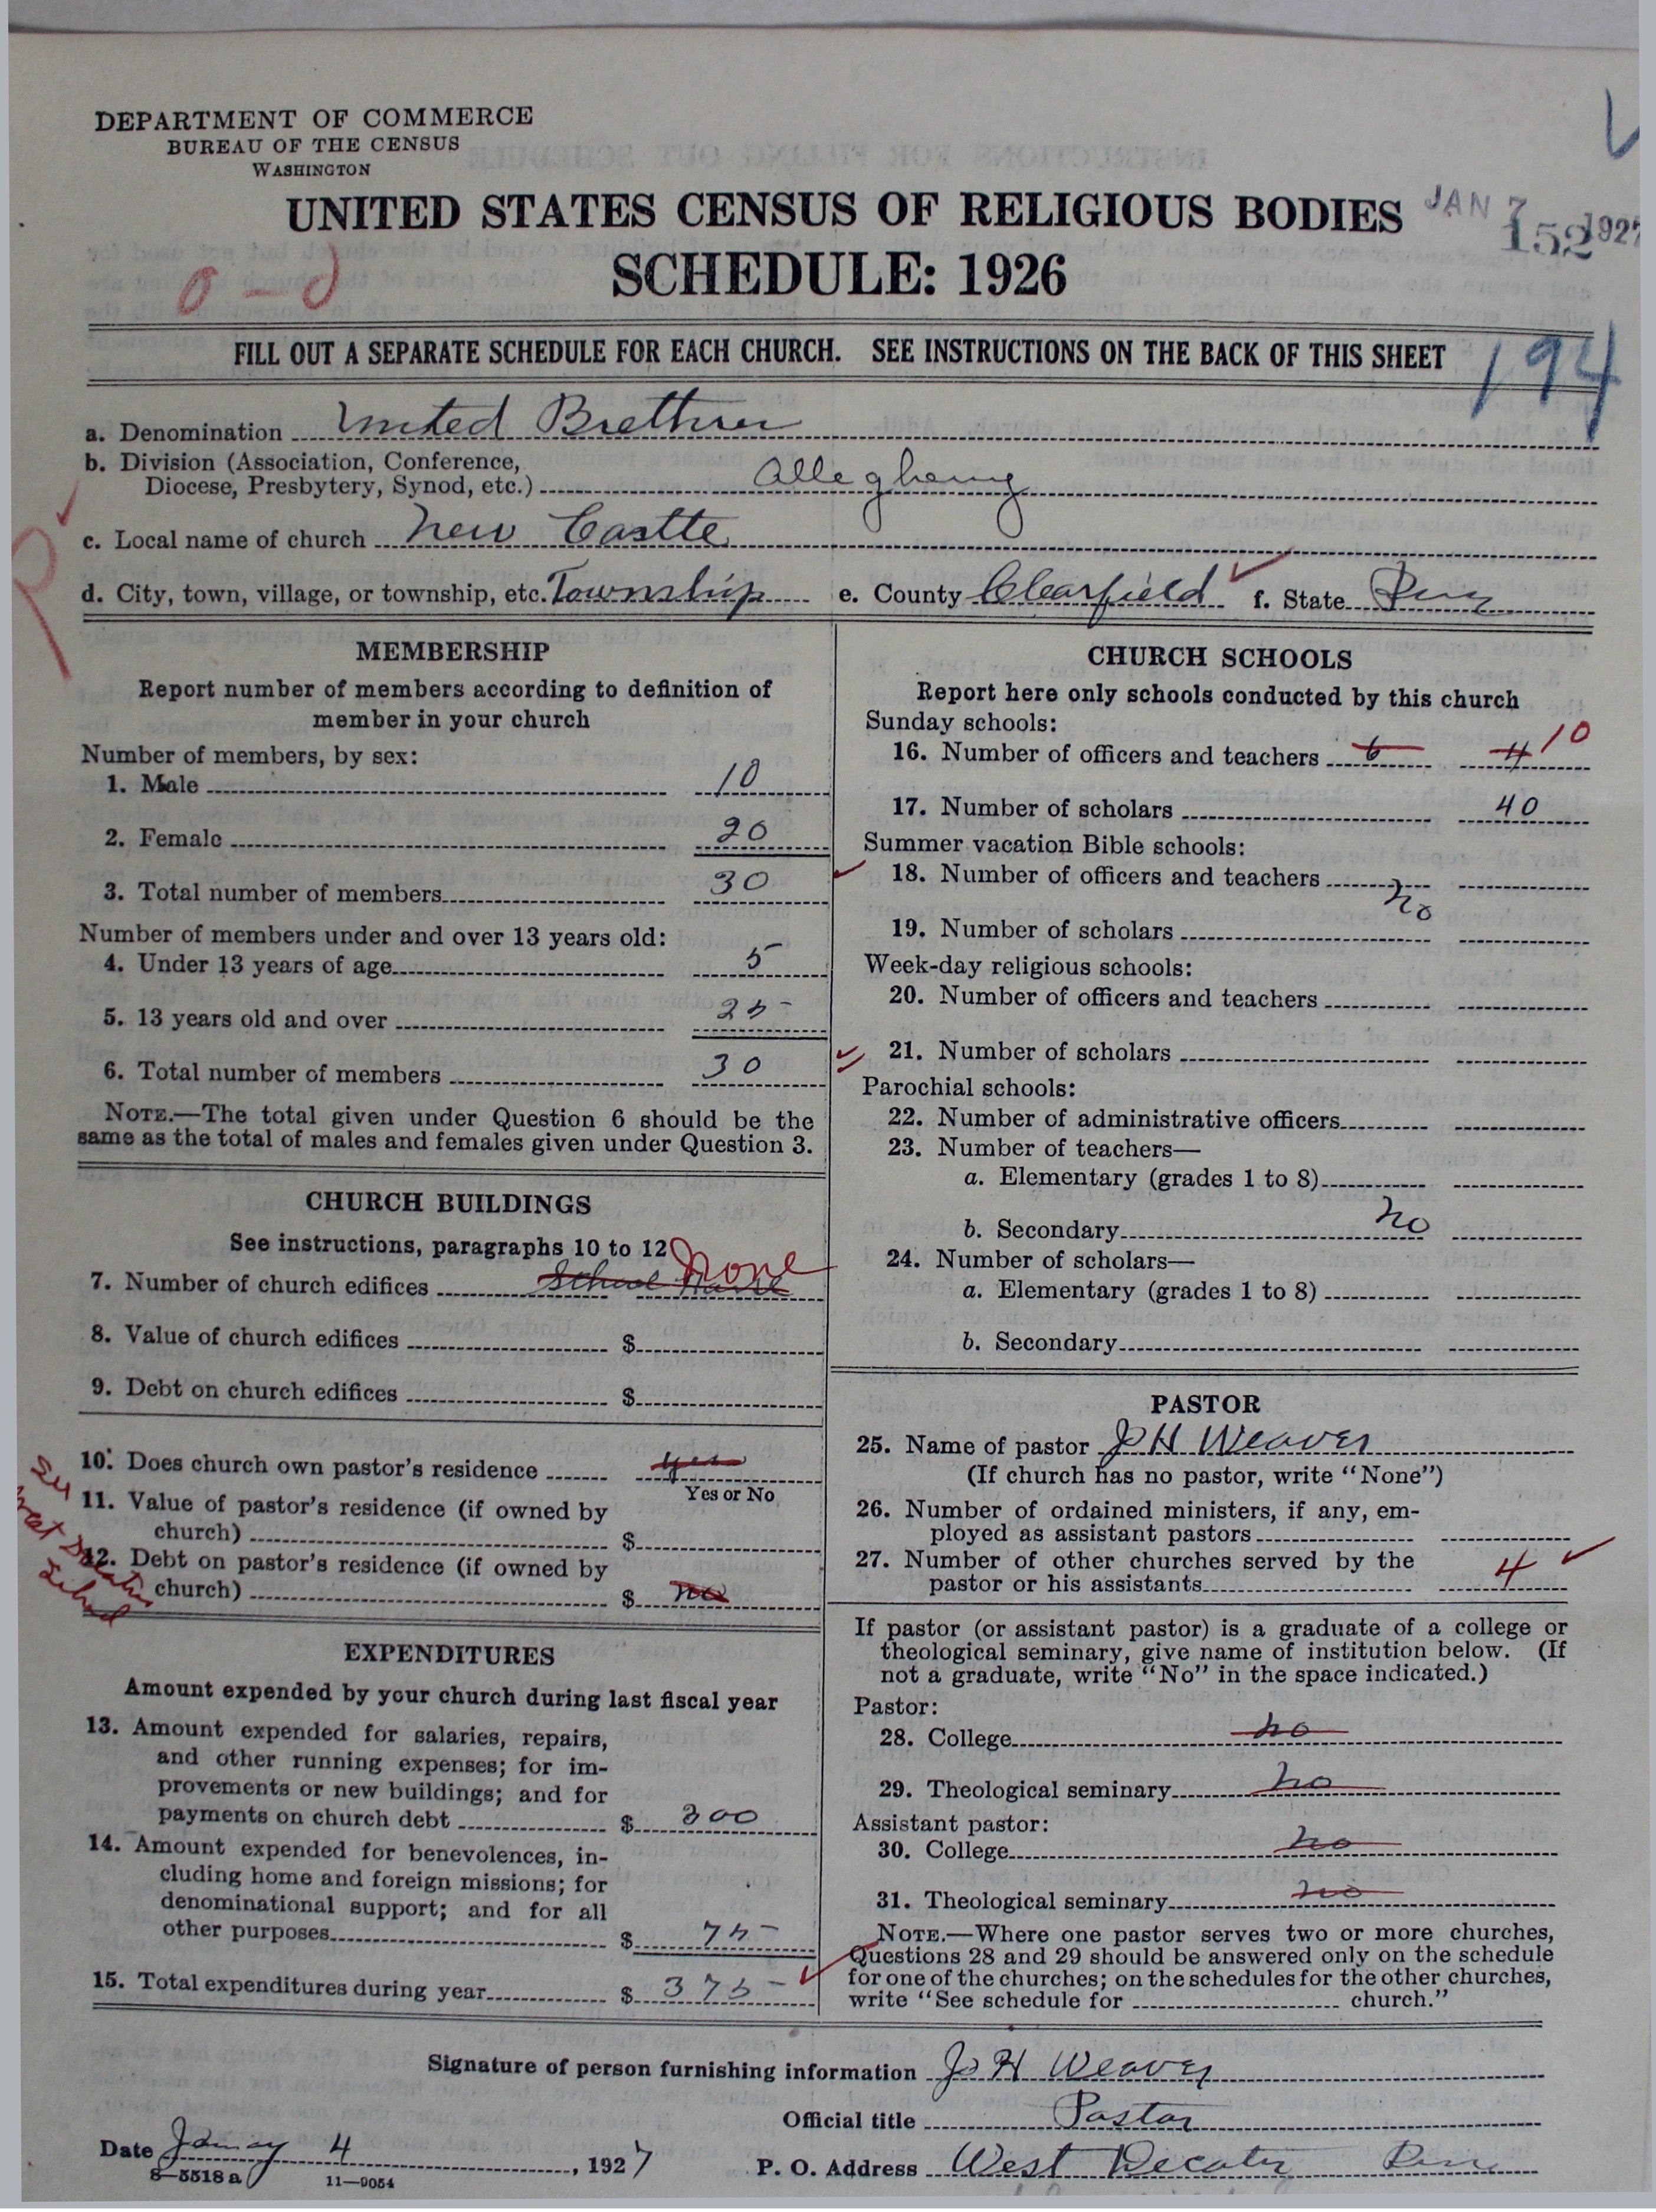 DEPARTMENT OF COMMERCE
BUREAU OF THE CENSUS
WASHINGTON
UNITED STATES CENSUS OF RELIGIOUS BODIES
JAN 7 1927
152
SCHEDULE: 1926
FILL OUT A SEPARATE SCHEDULE FOR EACH CHURCH. SEE INSTRUCTIONS ON THE BACK OF THIS SHEET
194
a. Denomination United Brethren
b. Division (Association, Conference,
Diocese, Presbytery, Synod, etc.) Allegheny
c. Local name of church New Castle
d. City, town, village, or township, etc. Township e. County Clearfield f. State Penn
MEMBERSHIP
Report number of members according to definition of
member in your church
Number of members, by sex:
1. Male 10
2. Female 20
3. Total number of members 30
Number of members under and over 13 years old:
4. Under 13 years of age 5
5. 13 years old and over 25
6. Total number of members 30
NOTE.—The total given under Question 6 should be the
same as the total of males and females given under Question 3.
CHURCH BUILDINGS
See instructions, paragraphs 10 to 12
7. Number of church edifices School House None
8. Value of church edifices $
9. Debt on church edifices $
10. Does church own pastor's residence yes
Yes or No
11. Value of pastor's residence (if owned by
church) $
12. Debt on pastor's residence (if owned by
church) $ no
See West Decatur Sched
EXPENDITURES
Amount expended by your church during last fiscal year
13. Amount expended for salaries, repairs,
and other running expenses; for im-
provements or new buildings; and for
payments on church debt $ 300
14. Amount expended for benevolences, in-
cluding home and foreign missions; for
denominational support; and for all
other purposes $ 75
15. Total expenditures during year $ 375
CHURCH SCHOOLS
Report here only schools conducted by this church
Sunday schools:
16. Number of officers and teachers 6 4 10
17. Number of scholars 40
Summer vacation Bible schools:
18. Number of officers and teachers
no
19. Number of scholars
Week-day religious schools:
20. Number of officers and teachers
21. Number of scholars
Parochial schools:
22. Number of administrative officers
23. Number of teachers—
a. Elementary (grades 1 to 8)
b. Secondary no
24. Number of scholars—
a. Elementary (grades 1 to 8)
b. Secondary
PASTOR
25. Name of pastor J H Weaver
(If church has no pastor, write "None")
26. Number of ordained ministers, if any, em-
ployed as assistant pastors
27. Number of other churches served by the
pastor or his assistants 4
If pastor (or assistant pastor) is a graduate of a college or
theological seminary, give name of institution below. (If
not a graduate, write "No" in the space indicated.)
Pastor:
28. College no
29. Theological seminary no
Assistant pastor:
30. College no
31. Theological seminary no
NOTE.—Where one pastor serves two or more churches,
Questions 28 and 29 should be answered only on the schedule
for one of the churches; on the schedules for the other churches,
write "See schedule for church."
Signature of person furnishing information J H Weaver
Official title Pastor
Date Januay 4, 1927
P. O. Address West Decatur Penn
8—5518 a 11—9054